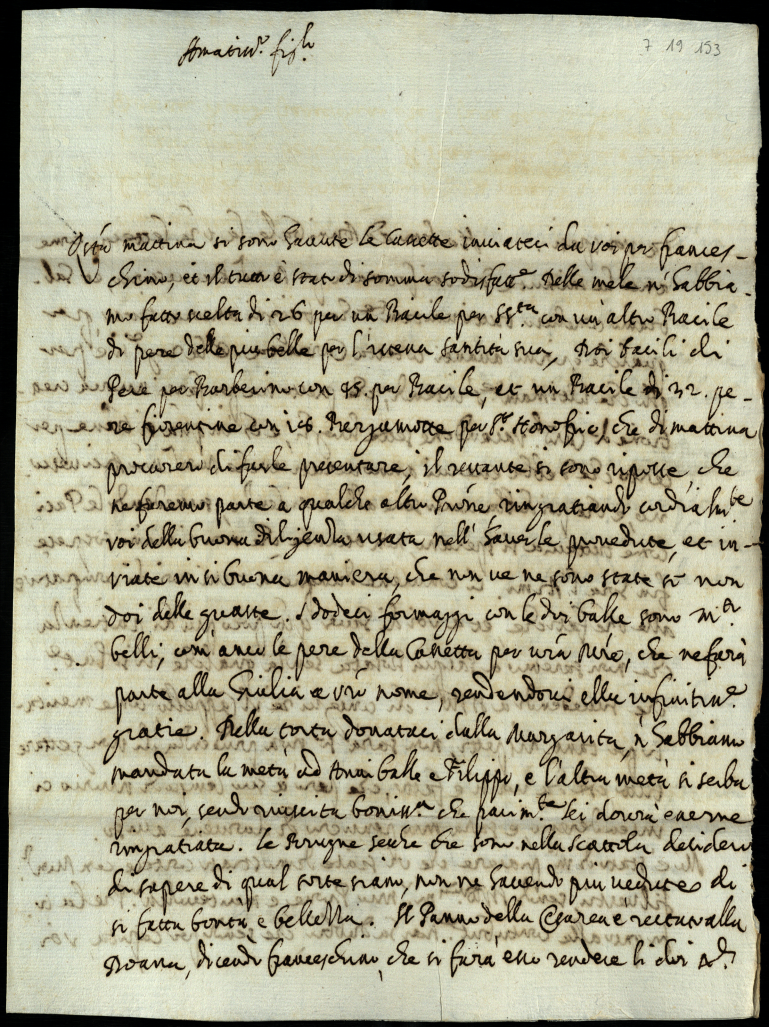 Amatiss.o fig.lo
7 19 153
Q.sta mattina si sono havute le Cassette inviateci da voi per frances-
chino, et il tutto è stato di somma sodisfatt.e Delle mele n'habbia-
mo fatto scelta di 26 per un Bacile per S.S.ta con un'altro Bacile
di pere delle piu belle per l'istessa Santità sua, Doi bacili di
Pere per Barberino con 45. per Bacile, et un Bacile di 32. pe-
re fiorentine con 26. Bergamotte per S. Honofrio, che di mattina
procurerò di farle presentare, il restante si sono riposte, che
ne faremo parte a qualche altro Pñre ringratiando cordialm.te
voi della buona diligenza usata nell'haverle provedute, et in-
viate in si buona maniera, che non ve ne sono state se non
doi delle guaste. I dodeci formaggi con le doi balle sono m.to
belli, com'anco le pere della Cassetta per vr̃a m̃re, che ne farà
parte alla Giulia a vr̃o nome, rendendovi ella infinitiss.e
gratie. Della torta donataci dalla Margarita, n'habbiamo
mandata la metà ad Annibale e Filippo, e l'altra metà si serba
per noi, sendo riuscita boniss.a che parim.te lei dovrà esserne
ringratiata. Le Brugne secche che sono nella scattola desidero
di sapere di qual sorte siano, non ne havendo piu vedute di
si fatta bontà e bellezza. Il Panno della Cesarea è restato alla
Doana, dicendo franceschino, che si farà esso rendere li doi